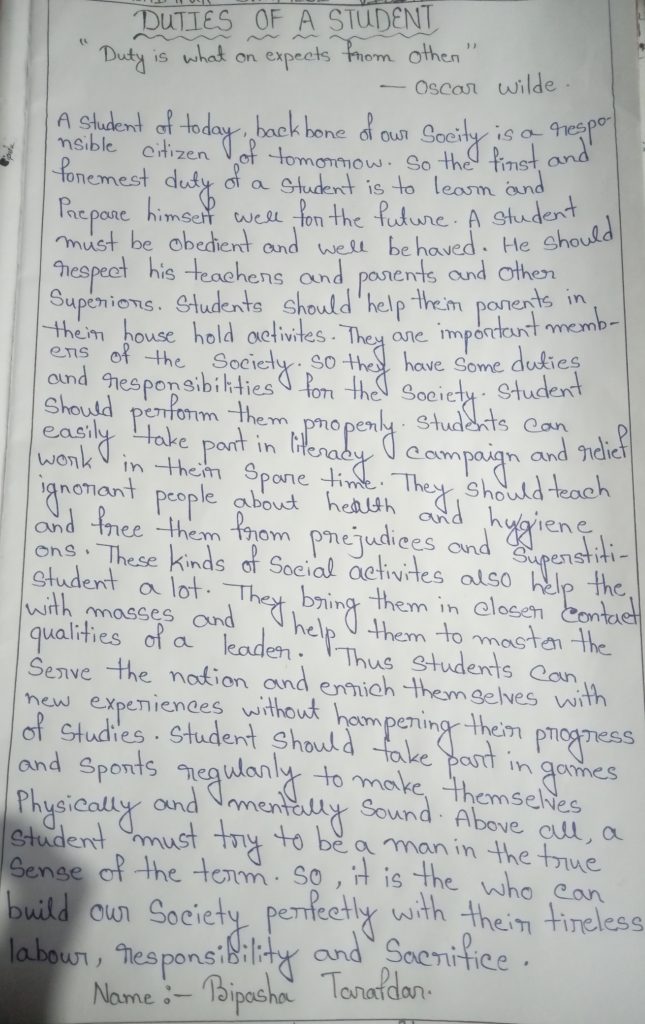 DUTIES OF A STUDENT
"Duty is what on expects from other"
— Oscar Wilde.
A Student of today, back bone of our Socity is a respo-
nsible citizen of tomorrow. So the first and
foremest duty of a Student is to learn and
Prepare himself well for the future. A Student
must be obedient and well be haved. He should
respect his teachers and parents and other
Superiors. Students should help their parents in
their house hold activites. They are important memb-
ers of the Society. So they have some duties
and responsibilities for the Society. Student
Should perform them properly. Students can
easily take part in literacy campaign and relief
work in their spare time. They should teach
ignorant people about health and hygiene
and free them from prejudices and Superstiti-
ons. These kinds of Social activites also help the
Student a lot. They bring them in closer Contact
with masses and help them to master the
qualities of a leader. Thus Students Can
Serve the nation and enrich themselves with
new experiences without hampering their progress
of Studies. Student Should take part in games
and Sports regularly to make themselves
Physically and mentally Sound. Above all, a
Student must try to be a man in the true
Sense of the term. So, it is the who can
build our Society perfectly with their tireless
labour, responsibility and Sacrifice.
Name :- Bipasha Tarafdar.